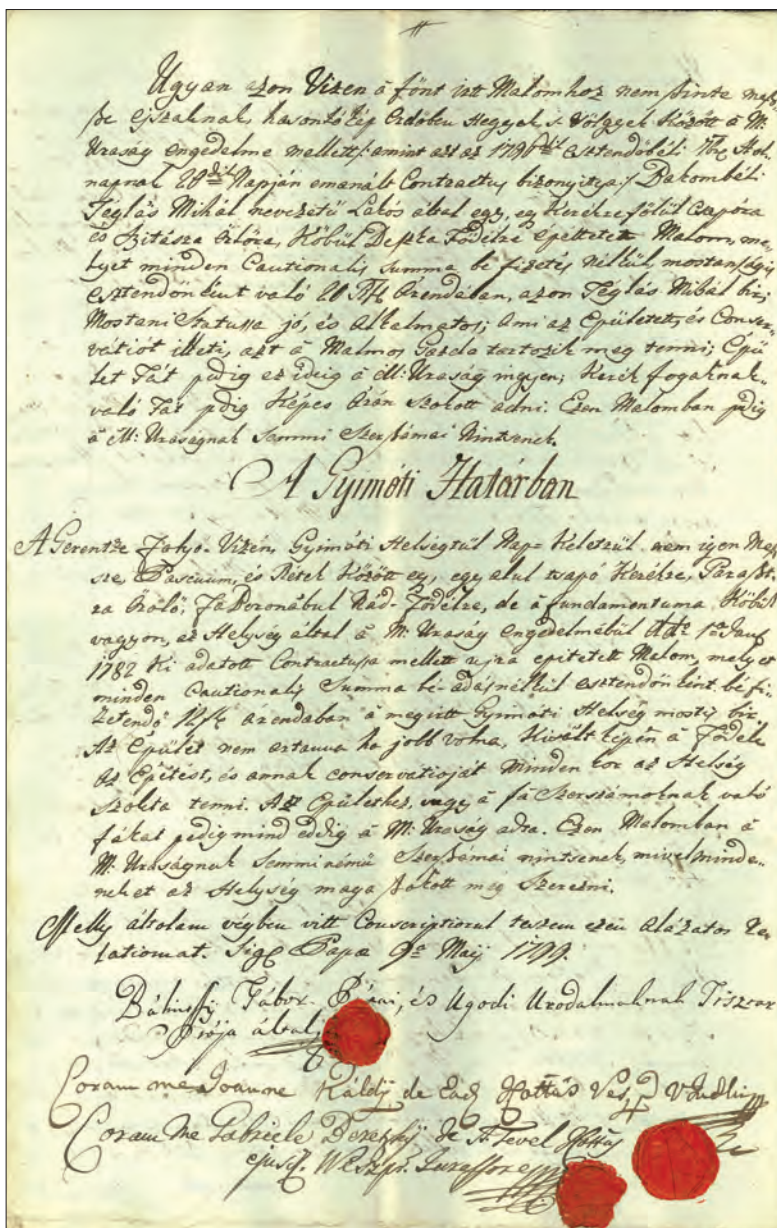 Ugyan azon Vizen â fönt irtt Malomhoz nem szinte mesz-
sze ejszaknak, hasonlókép Erdőben Hegyek s Völgyek között â M:
Uraság engedelme mellett /: amint azt az 1796dik esztendőbéli Hol-
napnak 20dik Napján emanált Contractus bizonyitya :/ Bakonbéli
Téglás Mihál nevezetű Lakós által egy, egy Kerékre fölül Csapóra
és Szitászra Őrlőre, Kőbül Deszka Födélre épéttetett Malom, me-
lyet minden Cautionalis summa be fizetés nélkül, mostanságis
esztendőnként való 20 Rf Árendában, azon Téglás Mihál birj
Mostani Statussa jó, és alkalmatos; Ami az Épületett, és Conser-
vátiót illeti, azt â Malmos Gazda tartozik meg tenni; Épü-
let Fát pedig ez ideig â M: Uraság ingyen; Kerék fogaknak
való Fát pdig Képes Árán szokott adni. Ezen Malomban pdig
â M: Uraságnak Semmi Szerszámai Nintsenek.
A Gyimóti Határban
A Gerentze Folyo-Vizén, Gyimóti Helységtül Nap-Keletrül nem igen Mesz-
sze, Pascuum, és Rétek Között egy, egy alul tsapó Kerékre, Paraszt-
ra Őrölő, Fa Boronábul Nád-Födélre, de â fundamentuma Kőbül
vagyon, az Helység által â M: Uraság engedelmébül
1782 Ki adatott Contractussa mellett ujra epitetett Malom, melyet
minden Cautionalis Summa bé-adás nélkül esztendőnként béfi-
zetendő Rf árendaban â megirtt Gyimóti Helység mostis birj
Az Épület nem ártanna ha jobb volna, Kivált képen â Födele
Az Epétést, és annak conservatioját minden kor az Helség
szokta tenni. Az Épülethez, vagy â fa Szerszámoknak való
fákat pedig mind eddig â M: Uraság adta. Ezen Malomban â
M: Uraságnak Semminémű Szerszámai nintsenek, mivel minde-
neket az Helység maga szokott meg Szerezni.
Melly általam végben vitt Conscriptiorul teszem ezen alázatos Re-
latiomat. Sig Papæ 9a Maij 1799.
Gábor Pápai, és Ugodi Uradalmaknak Tisztar-
tója által
Coram me Joanne Káldy de Ead
Coram Me Gabriele de Tevel
ejusd. Jurassore